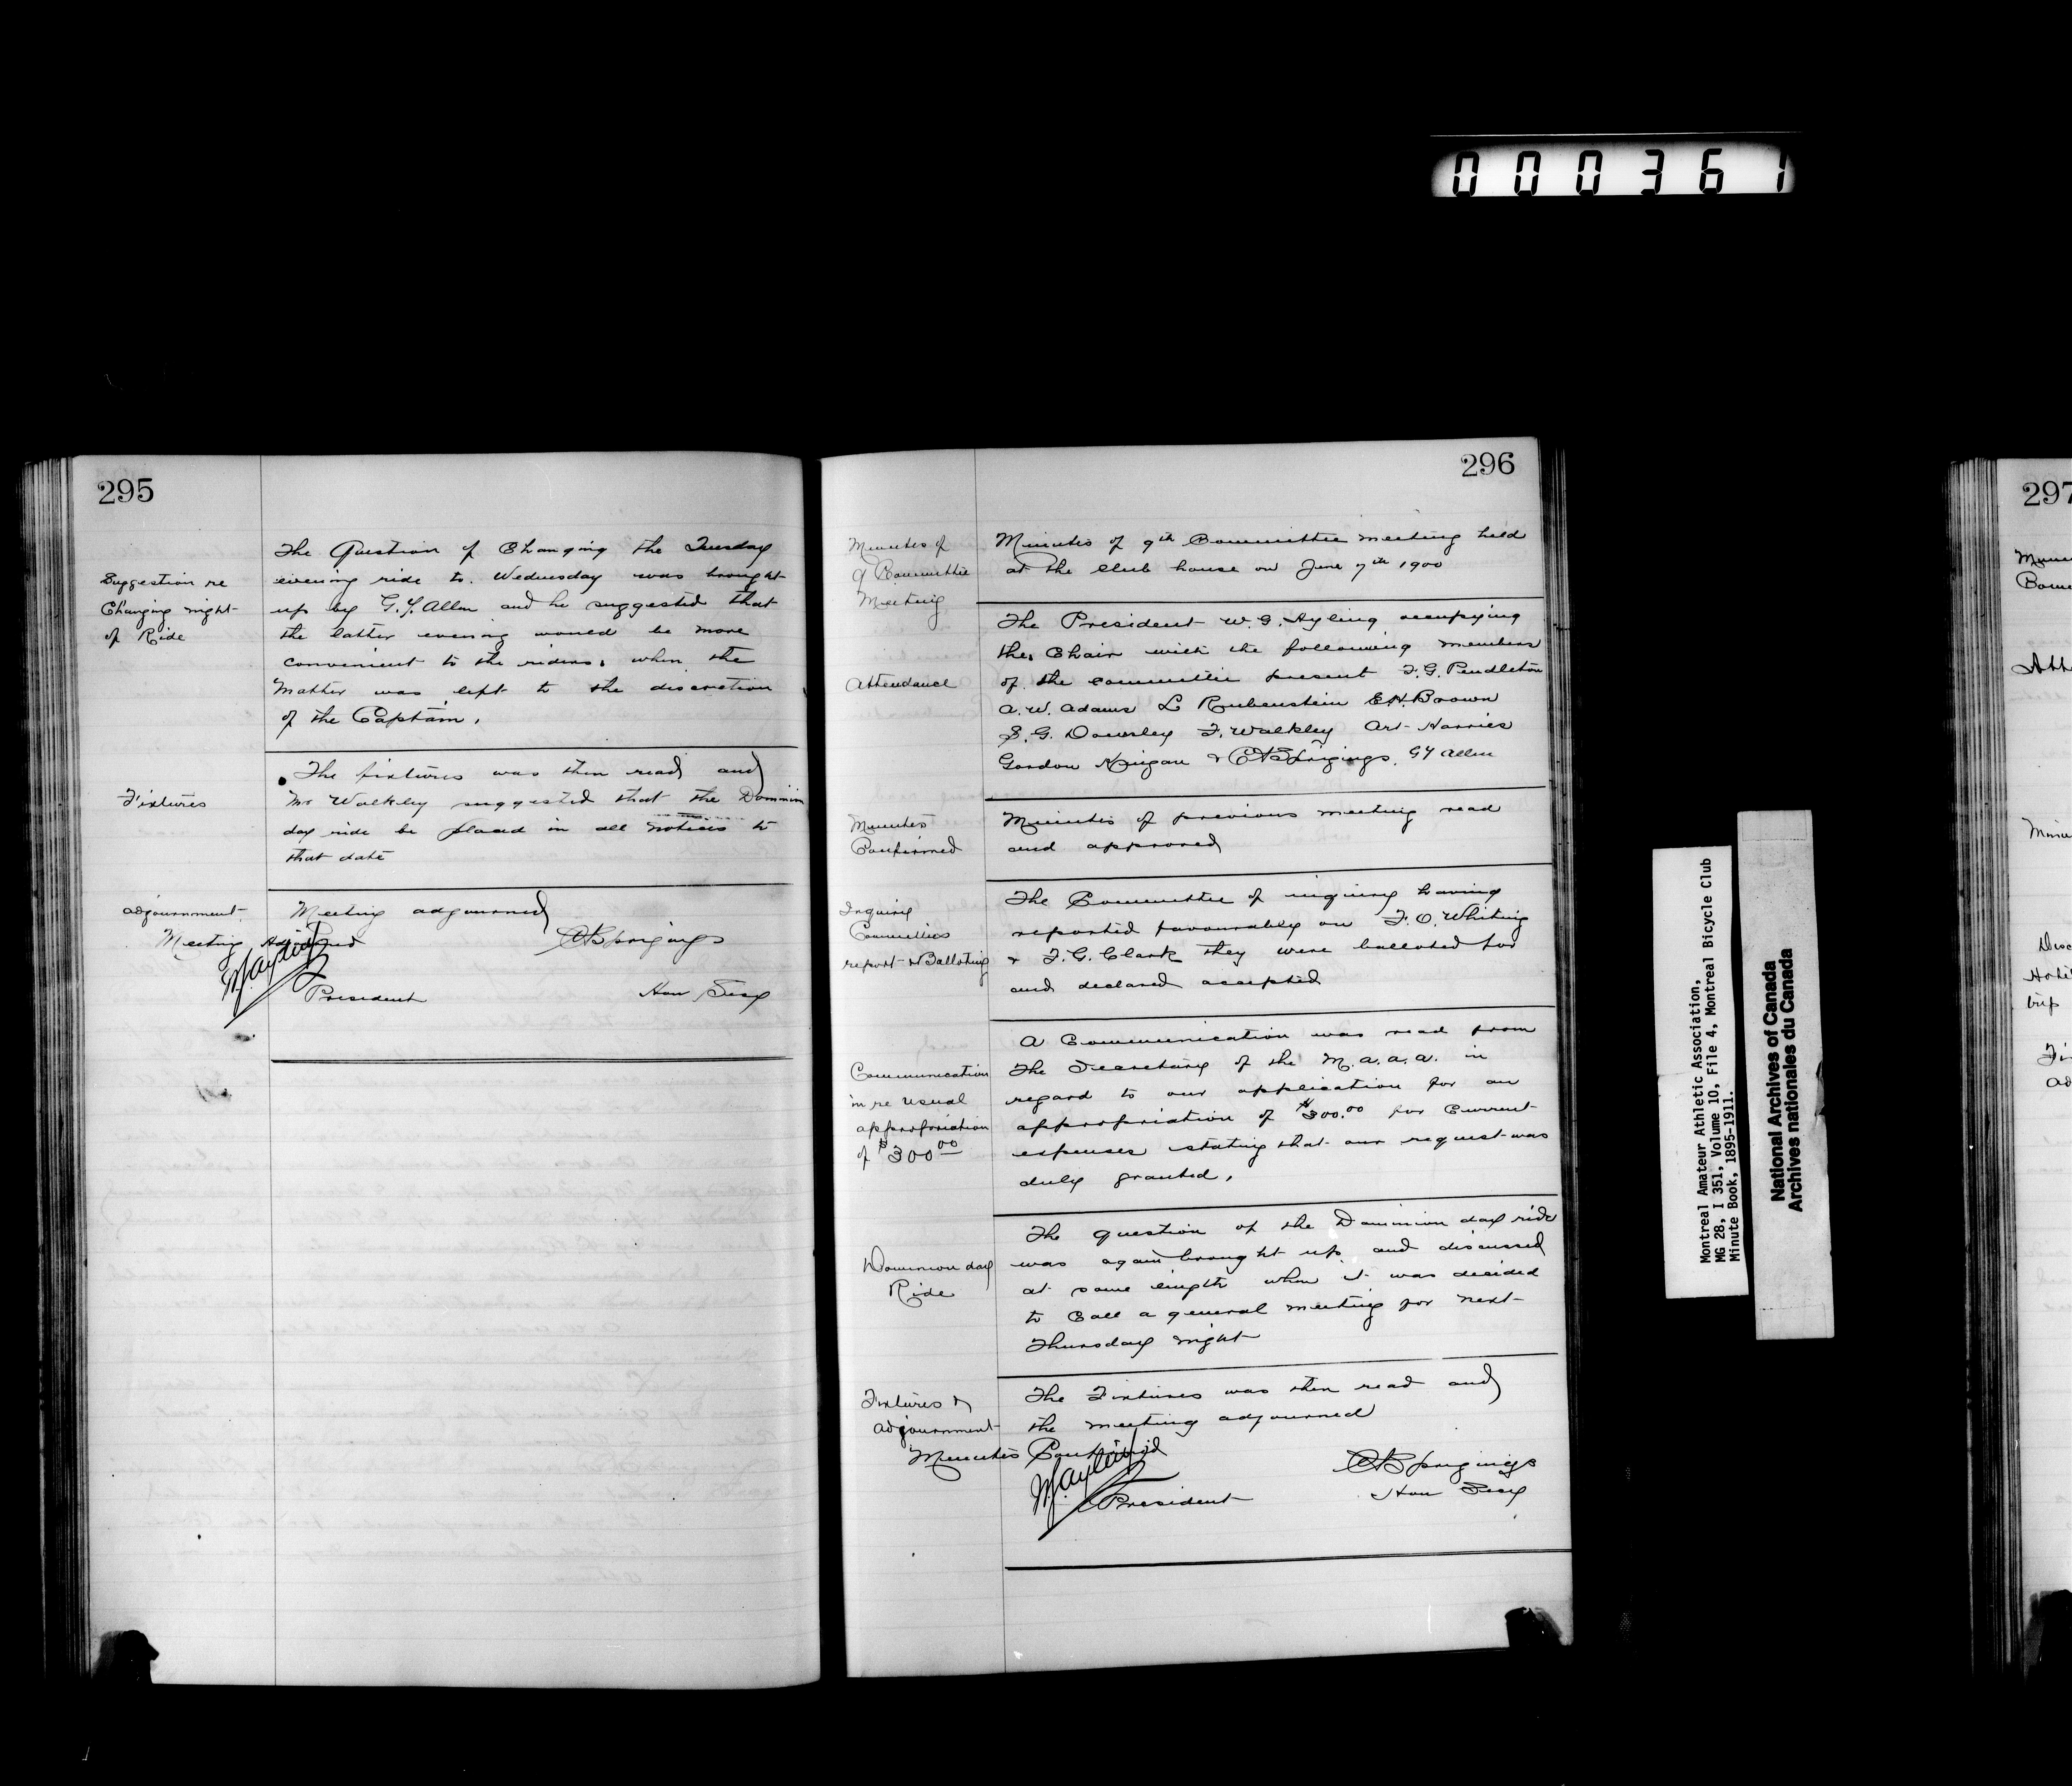 000361
295
Suggestion re
Changing night
of Ride
The Question of Changing the Tuesday
evening ride to Wednesday was brought
up by G.Y. Allen and he suggested that
the latter evening would be more
convenient to the riders, when the
Matter was left to the discretion
of the Captain.
Fixtures
The fixtures was then read and
Mr Walkley suggested that the Dominion
day ride be placed in all notices to
that date
adjournment
Meeting adjourned
Meeting
President
Hon Secy
296
Minutes of
9 Committee
Meeting
Minutes of 9th Committee meeting held
at the Club house on June 7th 1900
Attendance
The President W.G. Ayling occupying
the Chair with the following members
of the committee present F.G. Pendleton
A.W. Adams L Rubenstein E.H. Brown
S.G. Dowsley F. Walkley Art Harries
Gordon & Sprigings, GY Allen
Minutes
Confirmed
Minutes of previous meeting read
and approved
Inquiry
Committees
report & Balloting
The Committee of inquiry having
reported favourably on F.O. Whiting
& F.G. Clark they were balloted for
and declared accepted
Communication
in re usual
appropriation
of $300 00
A Communication was read from
the Secretary of the M.A.A.A. in
regard to our application for an
appropriation of $300.00 for Current
expenses stating that our request was
duly granted.
Dominion day
Ride
The question of the Dominion day ride
was again brought up and discussed
at some length when it was decided
to Call a general meeting for next
Thursday night
Fixtures &
adjournment
The Fixtures was then read and
the meeting adjourned
Minutes Confirmed
President
Sprigings
Hon Secy
Montreal Amateur Athletic Association,
MG 28, I 351, Volume 10, File 4, Montreal Bicycle Club
Minute Book, 1895-1911.
National Archives of Canada
Archives nationales du Canada
297